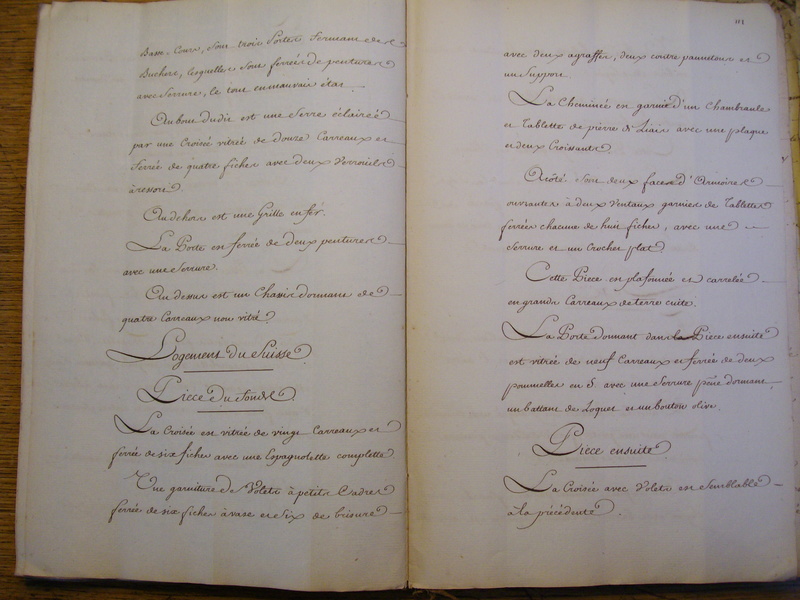 Basse-Cour, sont trois Portes fermant des
Buchers, lesquelles sont ferrées de pentures
avec Serrure, le tout en mauvais état.
Au bout dudit est une Serre éclairée
par une Croisée vitrée de douze Carreaux et
ferrée de quatre fiches avec deux Verrouils
à ressort.
Au dehors est une Grille en fer.
La Porte est ferrée de deux pentures
avec une Serrure.
Au dessus est un Chassis dormant de
quatre Carreaux non vitré.
Logement du Suisse
Piece du fond
La Croisée est vitrée de vingt Carreaux et
ferrée de six fiches avec une Espagnolette complette
Une garniture de Volets à petits Cadres
ferrée de six fiches à vase et Six de brisure
111
avec deux agraffes, deux contre pannetons et
un Support.
La Cheminée est garnie d'un Chambranle
et Tablette de pierre de Liais avec une plaque
et deux Croissants.
A côté sont deux faces d'Armoires
ouvrantes à deux Ventaux garnies de Tablettes
ferrées chacune de huit fiches, avec une
Serrure et un Crochet plat.
Cette Piece est plafonnée et carrelée
en grands Carreaux de terre cuite.
La Porte donnant dans la Piece ensuite
est vitrée de neuf Carreaux et ferrée de deux
poumelles en S avec une Serrure pêne dormant,
un battant de Loquet et un bouton olive.
Piece ensuite
La Croisée avec Volets est Semblable
à la précédente.